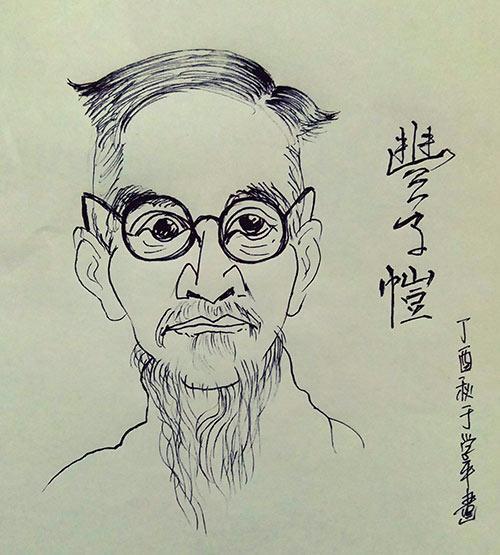 豐子愷
丁酉秋于学畫